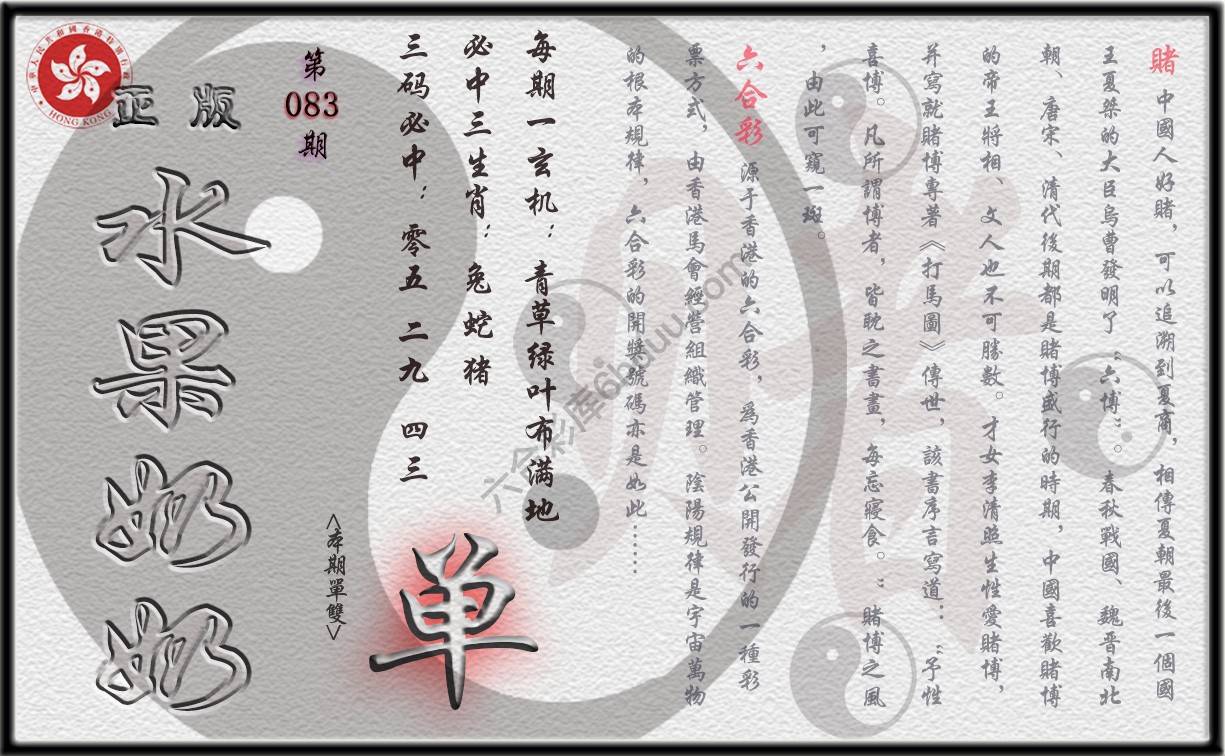 賭 中國人好賭，可以追溯到夏商，相傳夏朝最後一個國
王夏桀的大臣烏曹發明了“六博”。春秋戰國、魏晋南北
朝、唐宋、清代後期都是賭博盛行的時期，中國喜歡賭博
的帝王將相、文人也不可勝數。才女李清照生性愛賭博，
并寫就賭博專著《打馬圖》傳世，該書序言寫道：“予性
喜博。凡所謂博者，皆耽之書畫，每忘寢食。”賭博之風
，由此可窺一斑。
六合彩 源于香港的六合彩，爲香港公開發行的一種彩
票方式，由香港馬會經營組織管理。陰陽規律是宇宙萬物
的根本規律，六合彩的開獎號碼亦是如此……
每期一玄机：青草绿叶布满地
必中三生肖：兔蛇猪
三码必中：零五 二九 四三
单
<本期單雙>
第
083
期
正版
水果奶奶
中華人民共和國香港特別行政區
HONG KONG
六合彩库6huuu.com